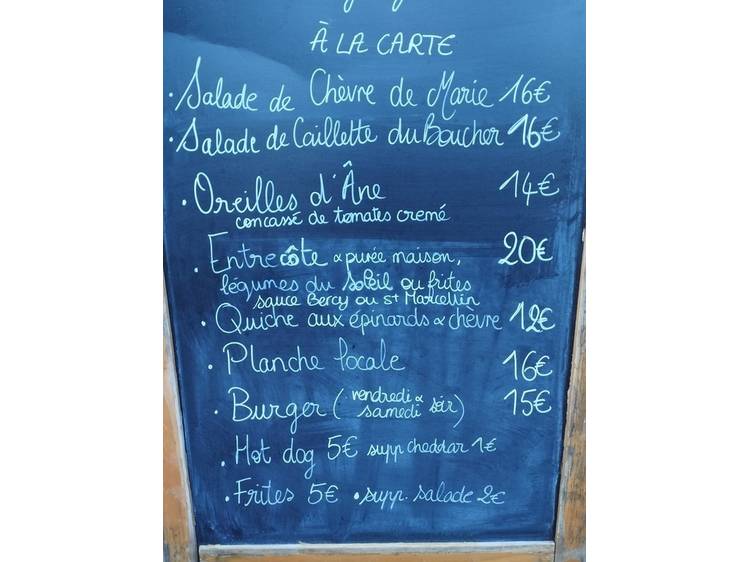 À LA CARTE
• Salade de Chèvre de Marie 16€
• Salade de Caillette du Boucher 16€
• Oreilles d'Âne 14€
concassé de tomates cremé
• Entrecôte & purée maison, 20€
légumes du soleil ou frites
sauce Bercy ou St Marcellin
• Quiche aux épinards & chèvre 12€
• Planche locale 16€
• Burger ( vendredi & samedi soir) 15€
• Hot dog 5€ supp cheddar 1€
• Frites 5€ • supp. salade 2€